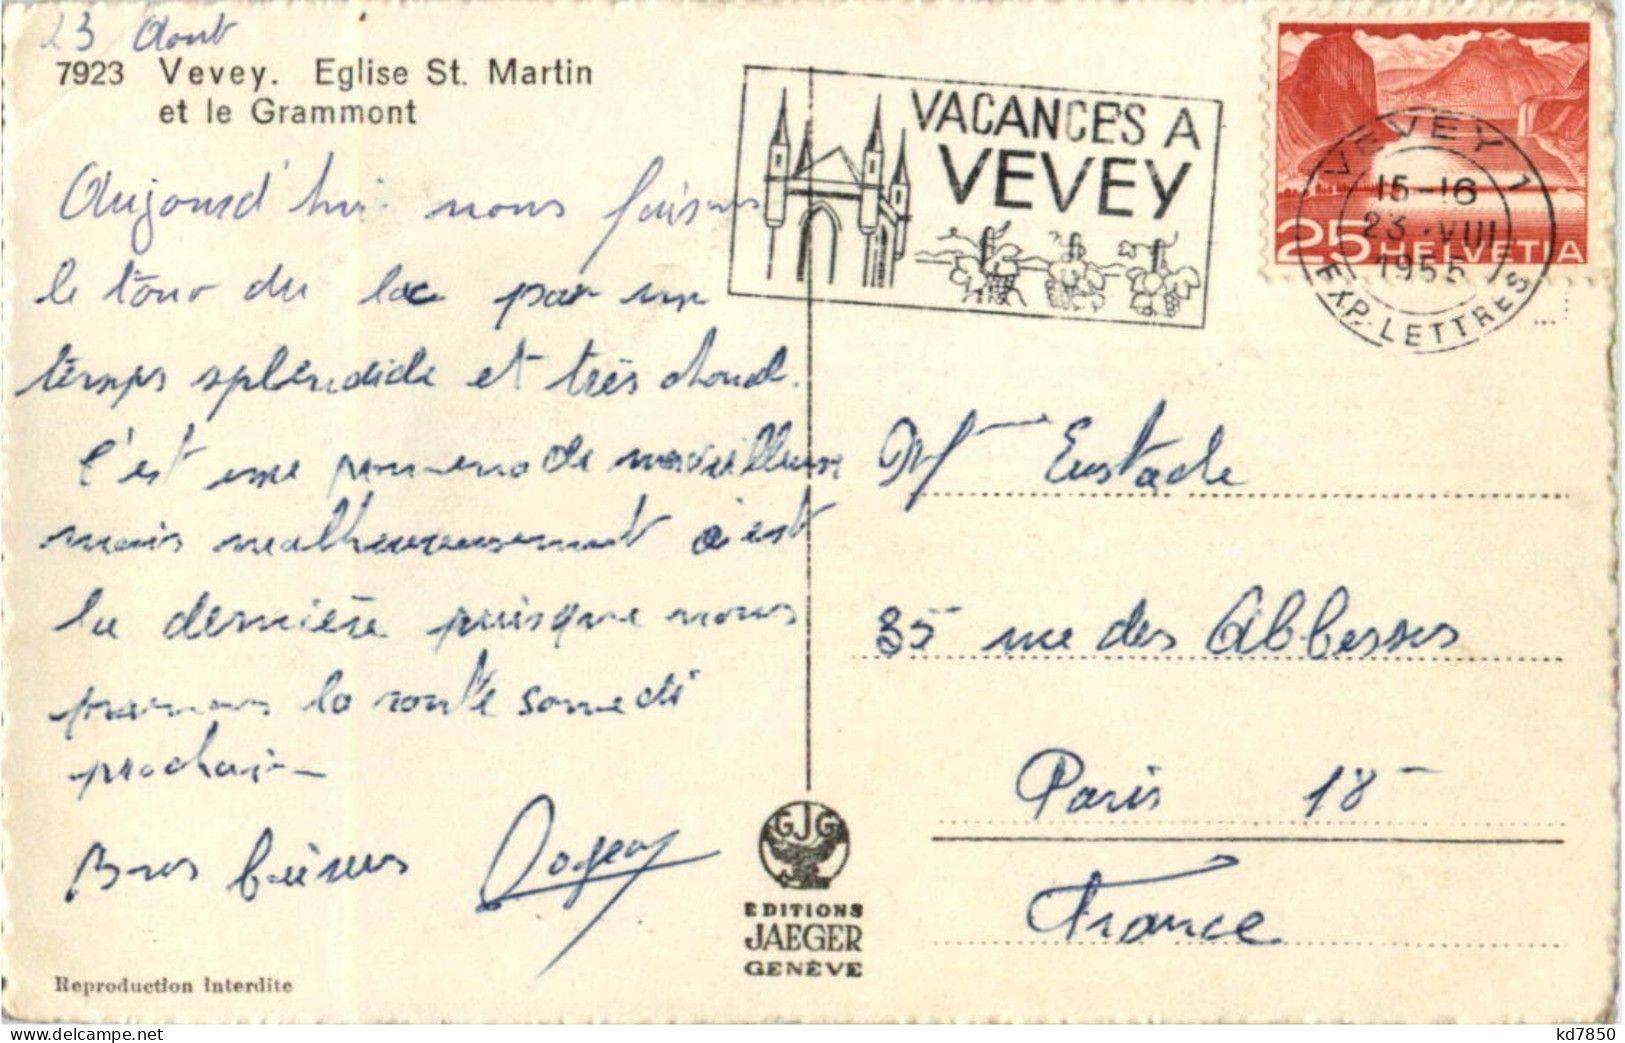 23 Aout
7923 Vevey. Eglise St. Martin
et le Grammont
Aujourd'hui nous faisons
le tour du lac par un
temps splendide et très chaud.
C'est une promenade merveilleuse
mais malheureusement c'est
la dernière puisque nous
prenons la route samedi
prochain
Bons baisers Roger
Reproduction interdite
GJG
EDITIONS
JAEGER
GENÈVE
VACANCES A
VEVEY
25 HELVETIA
VEVEY 1
15-16
23.VIII
1955
EXP. LETTRES
Mme Eustache
35 rue des Abbesses
Paris 18
France
kd7850